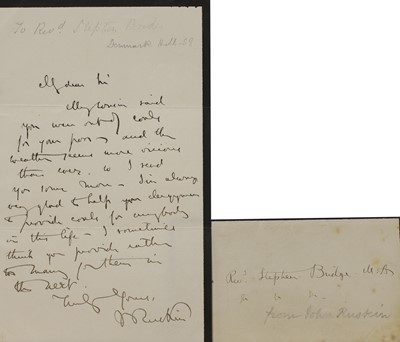 To Revd Stephen Bridge
Denmark Hill
My dear Sir
My cousin said
you were out of coals
for your poor – and the
weather seems more vicious
than ever. so I send
you some more – I'm always
very glad to help you clergymen
to provide coals for anybody
in this life – I sometimes
think you provide rather
too many for them in
the next.
Truly Yours,
J Ruskin
Revd Stephen Bridge M.A.
from John Ruskin